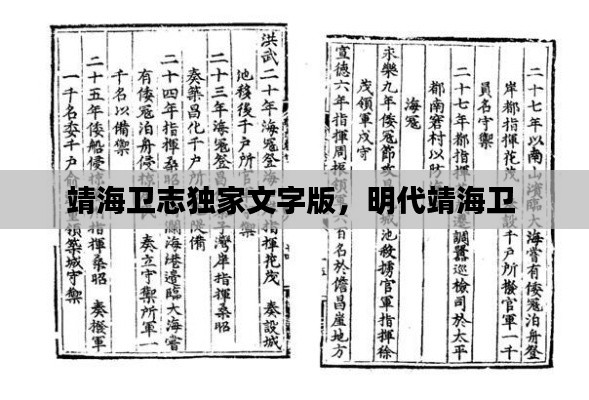 靖海卫志独家文字版，明代靖海卫
二十七年以南山濱臨大海嘗有倭冦泊舟登
岸都指揮花茂千戶所撥官軍一千
員名守禦
二十七年都指邊調蠶巡檢司於太平
都南窖村以防
海冦
永樂九年倭冦節城池殺擄官軍指揮徐
茂領軍戍守
宣德六年指揮周百名於儋昌崖地方
洪武二十年海冦登指揮花茂 奏設城
池移後千戶所官
二十三年海冦登昌灣岸指揮桑昭
奏築昌化千戶所隄備
二十四年指揮桑昭海港邊臨大海嘗
有倭冦泊舟停 奏立守禦所軍一
千名以備禦
二十五年倭船停指揮桑昭 奏撥軍
一千名委千戶領築城守禦